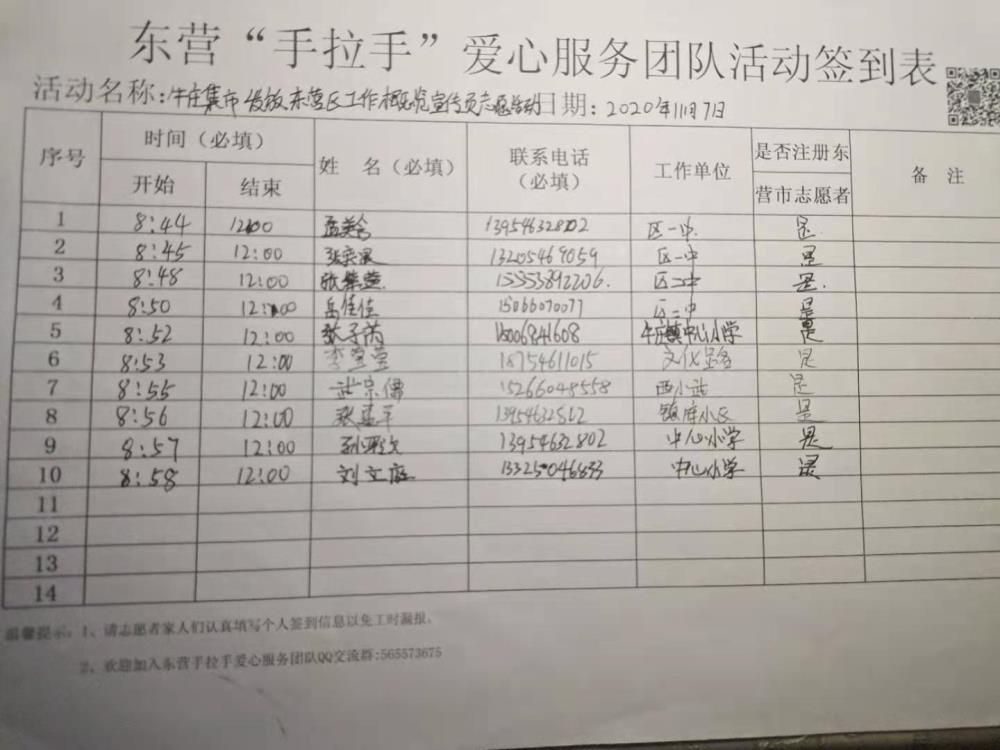 东营“手拉手”爱心服务团队活动签到表
活动名称:牛庄集市发放东营区工作概览宣传员志愿活动 日期:2020年11月7日
序号 时间(必填) 姓 名(必填) 联系电话(必填) 工作单位 是否注册东营市志愿者 备 注
开始 结束
1 8:44 12:00 13954632802 区一中. 是
2 8:45 12:00 13205469059 区一中 是
3 8:48 12:00 15553892206. 区二中 是.
4 8:50 12:00 岳佳佳 15066070077 区二中 是
5 8:52 12:00 张子芮 牛庄镇中心小学 是
6 8:53 12:00 李莹莹 18754611015 文化路 是
7 8:55 12:00 武宗儒 15266048558 西小武 是
8 8:56 12:00 是
9 8:57 12:00 13954632802 中心小学 是
10 8:58 12:00 刘文庭 中心小学 是
11
12
13
14
温馨提示:1、请志愿者家人们认真填写个人签到信息以免工时漏报。
2、欢迎加入东营手拉手爱心服务团队QQ交流群:565573675